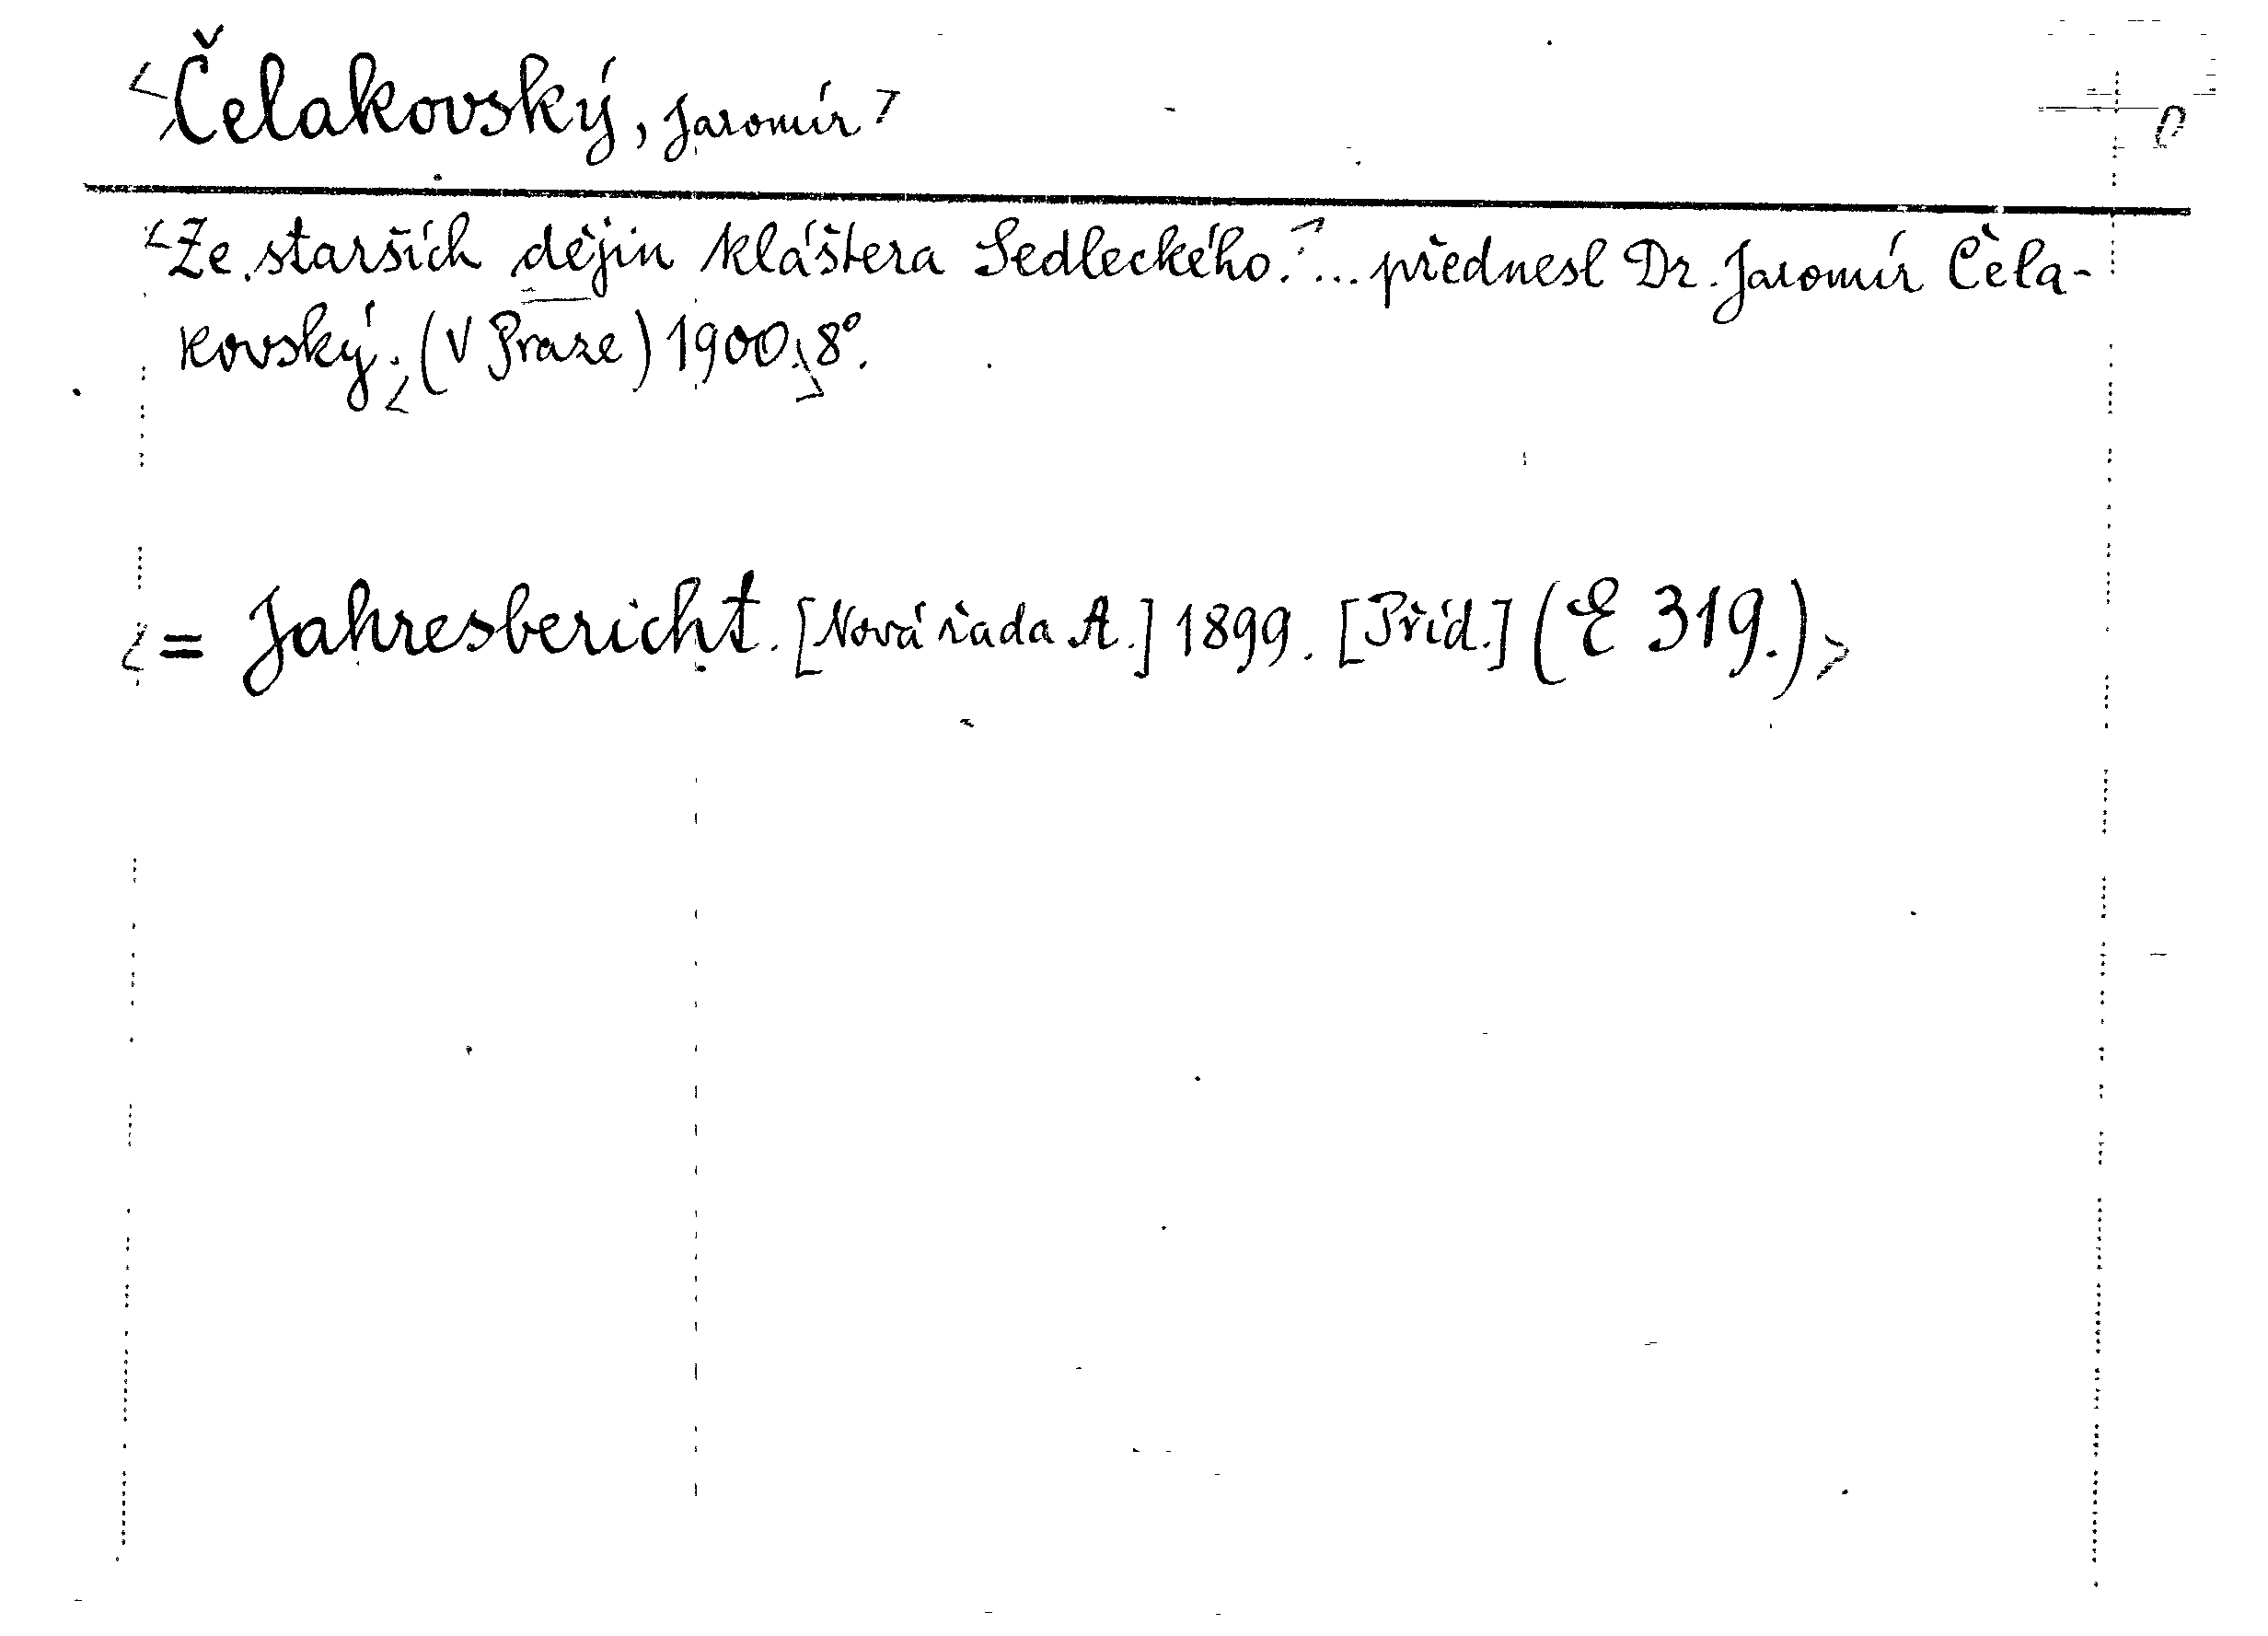 <Čelakovský, Jaromír>
<Ze starších dějin kláštera Sedleckého.>... přednesl Dr. Jaromír Čela-
kovský. <(V Praze) 1900.> 8°.
<= Jahresbericht. [Nová řada A.] 1899. [Příd.] (E 319.)>